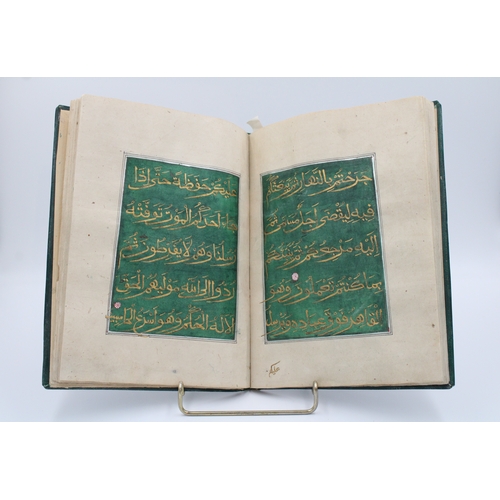 جرحتم بالنهار ثم يبعثكم
فيه ليقضى أجل مسمى ثم
إليه مرجعكم ثم ينبئكم
بما كنتم تعملون وهو
القاهر فوق عباده ويرسل
عليكم
عليكم حفظة حتى إذا
جاء أحدكم الموت توفته
رسلنا وهم لا يفرطون ثم
ردوا إلى الله مولاهم الحق
ألا له الحكم وهو أسرع الحاسبين